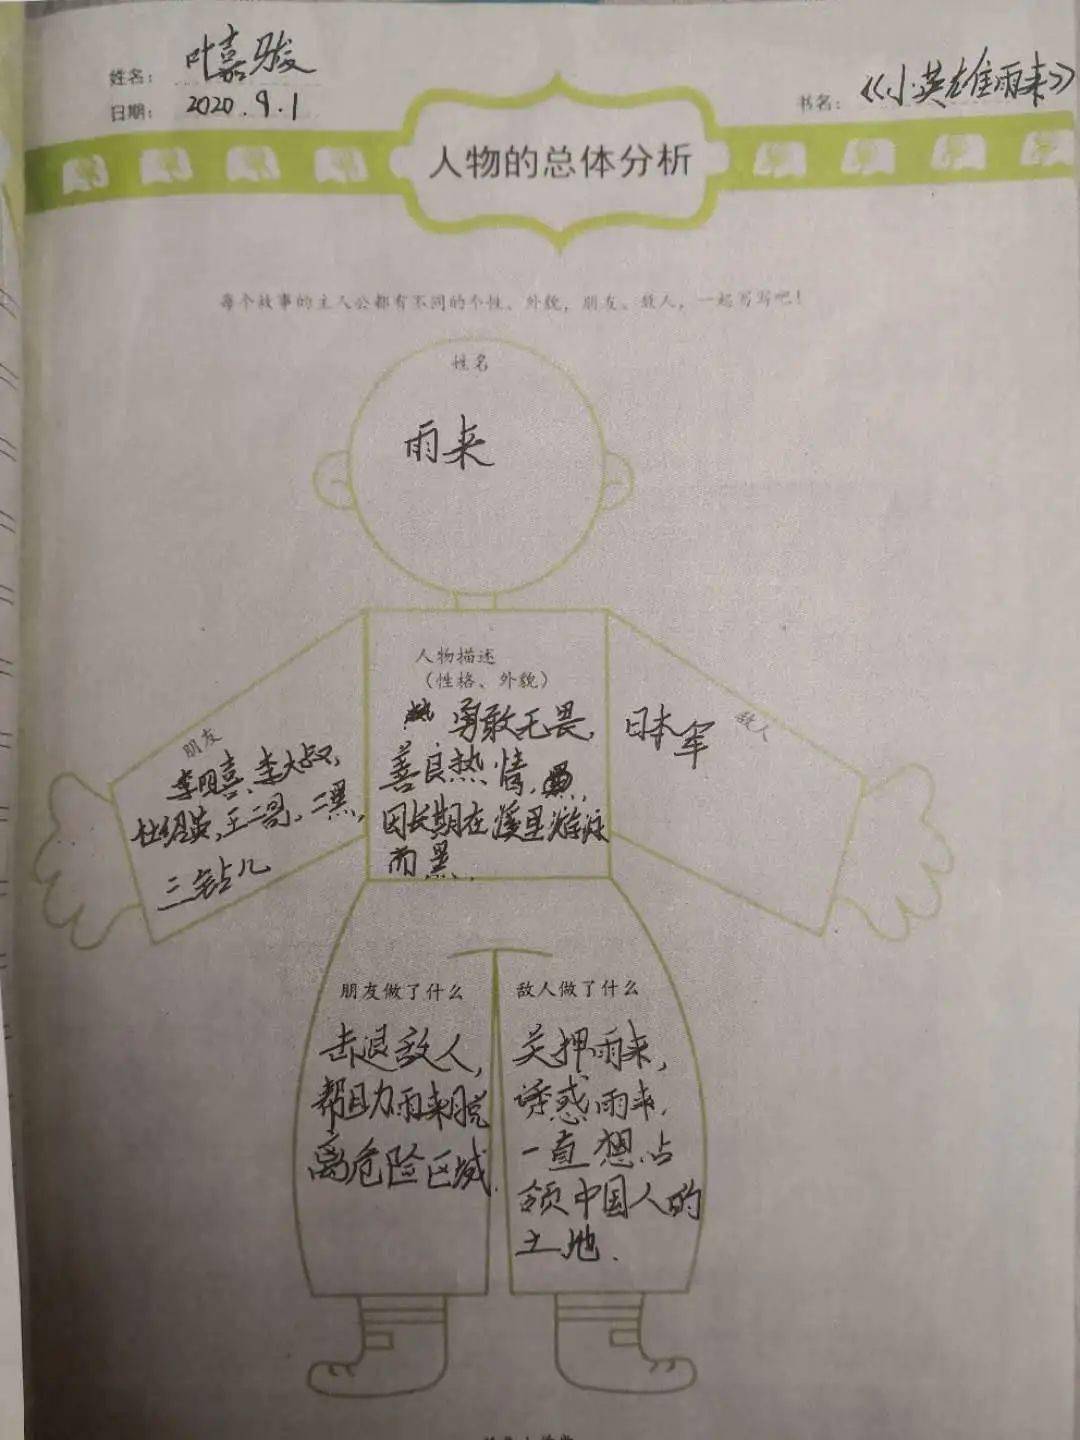 姓名： 叶嘉骏
日期： 2020.9.1
书名： 《小英雄雨来》
人物的总体分析
每个故事的主人公都有不同的个性、外貌，朋友、敌人，一起写写吧！
姓名
雨来
人物描述
（性格、外貌）
勇敢无畏，
善良热情，
因长期在溪里游泳
而黑．
朋友
李明喜、李大叔，
杜绍英，王二哥，二黑，
三钻儿
敌人
日本军
朋友做了什么
击退敌人，
帮助雨来脱
离危险区域．
敌人做了什么
关押雨来，
诱惑雨来，
一直想占
领中国人的
土地．